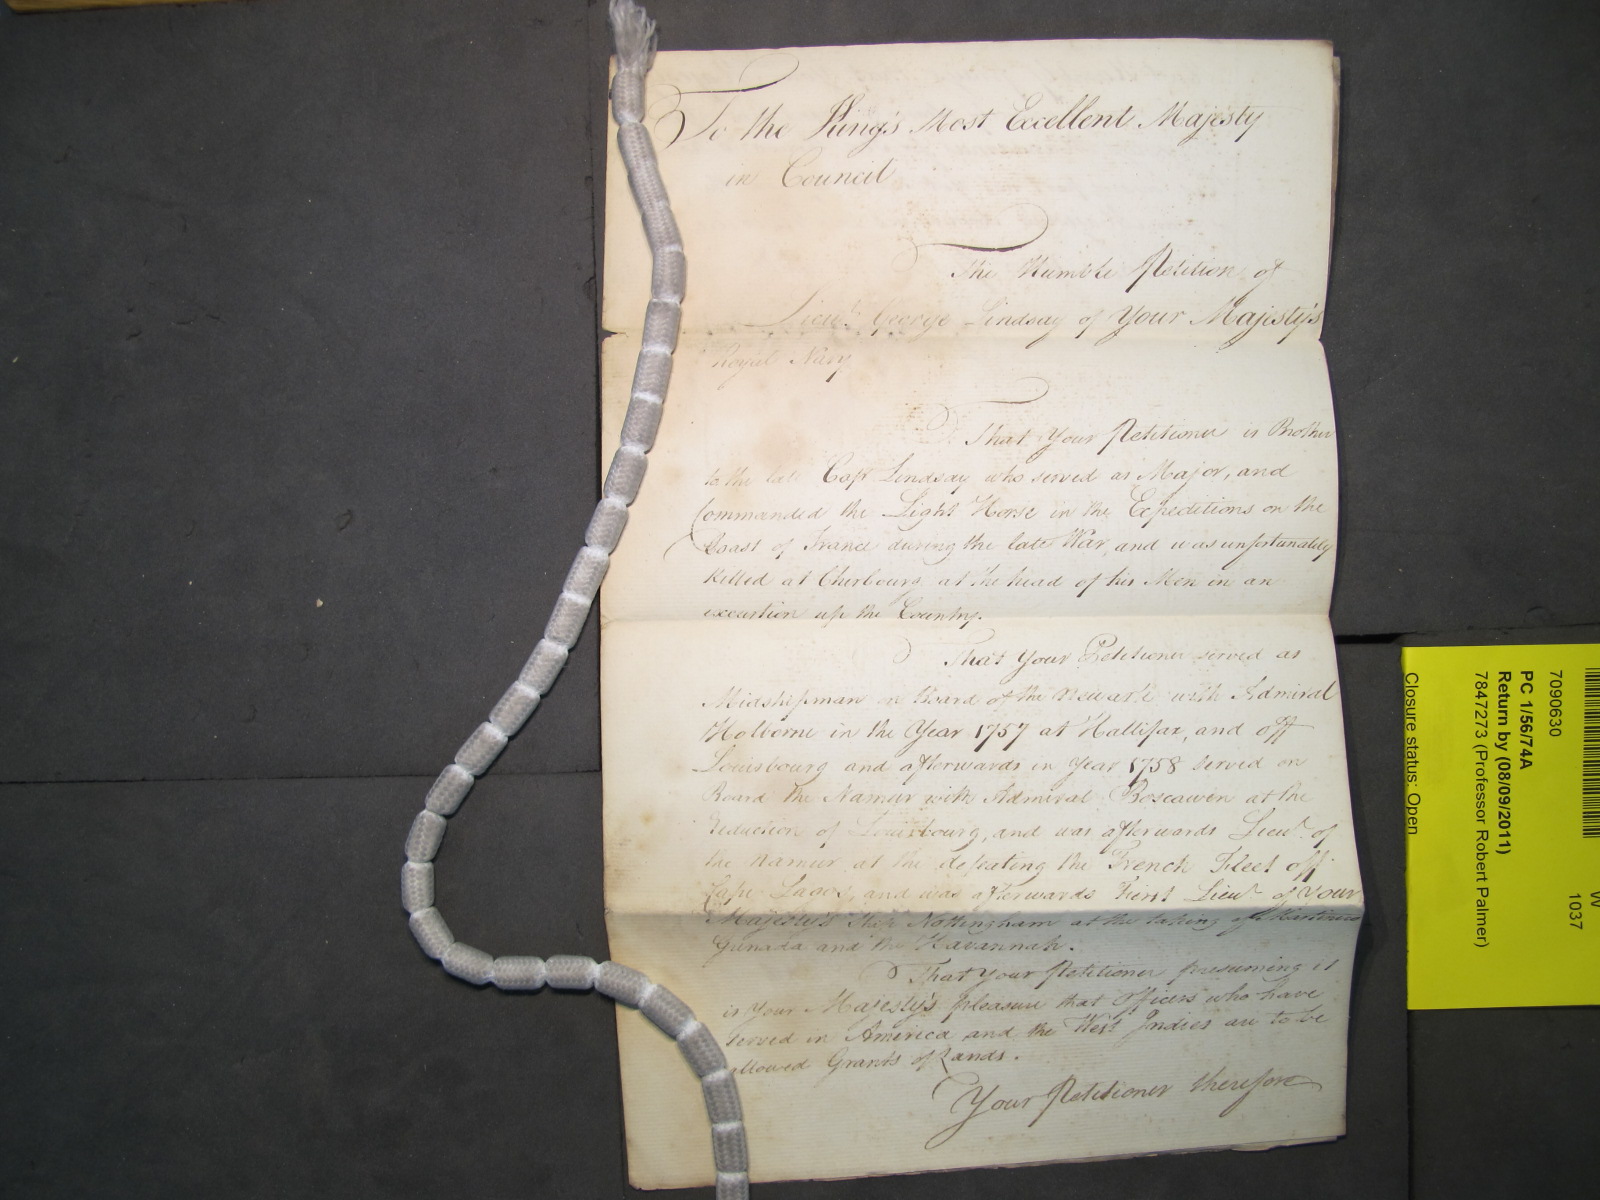 To the King's Most Excellent Majesty
in Council
The Humble Petition of
Lieut. George Lindsay of Your Majesty's
Royal Navy
That Your Petitioner is Brother
to the late Capt Lindsay who served as Major, and
Commanded the Light Horse in the Expeditions on the
Coast of France during the late War, and was unfortunately
killed at Cherbourg at the head of his Men in an
excurtion up the Country.
That Your Petitioner served as
Midshipman on Board of the Newark with Admiral
Holborne in the Year 1757 at Hallifax, and off
Louisbourg and afterwards in Year 1758 served on
Board the Namur with Admiral Boscawen at the
Reduction of Louisbourg, and was afterwards Lieut. of
the Namur at the defeating the French Fleet off
Cape Lagos, and was afterwards First Lieut of Your
Majesty's Ship Nottingham at the taking of Martinico
Grenada and the Havannah.
That Your Petitioner presuming it
is Your Majesty's pleasure that Officers who have
served in America and the West Indies are to be
allowed Grants of Lands.
Your Petitioner therefore
7090630
1037
PC 1/56/74A
Return by (08/09/2011)
7847273 (Professor Robert Palmer)
Closure status: Open